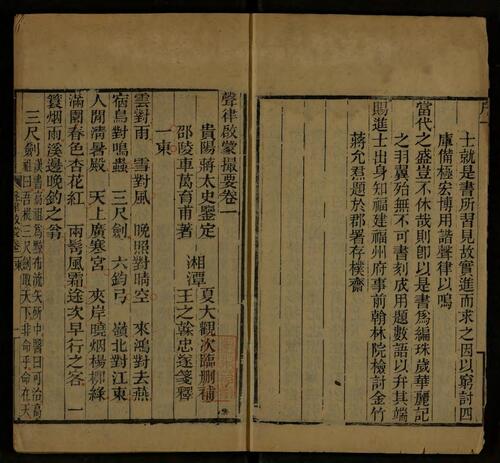 士就是書所習見故實進而求之因以窮討四
庫備極宏博用諧聲律以鳴
當代之盛豈不休哉則卽以是書爲編珠歲華麗記
之羽翼殆無不可書刻成用題數語以弁其端
賜進士出身知福建福州府事前翰林院檢討金竹
蔣允焄題於郡署存樸齋
聲律啟蒙撮要卷一
貴陽蔣太史鑒定 湘潭夏大觀次臨刪補
邵陵車萬育甫著 王之榦忠遂箋釋
一東
雲對雨 雪對風 晚照對晴空 來鴻對去燕
宿鳥對鳴蟲 三尺劍 六鈞弓 嶺北對江東
人閒清暑殿 天上廣寒宮 夾岸曉烟楊柳綠
滿園春色杏花紅 兩鬢風霜途次早行之客 一
簑烟雨溪邊晚釣之翁
三尺劍漢書高祖爲黥布流矢所中醫曰可治高
祖曰吾提三尺劍取天下非命乎命在天